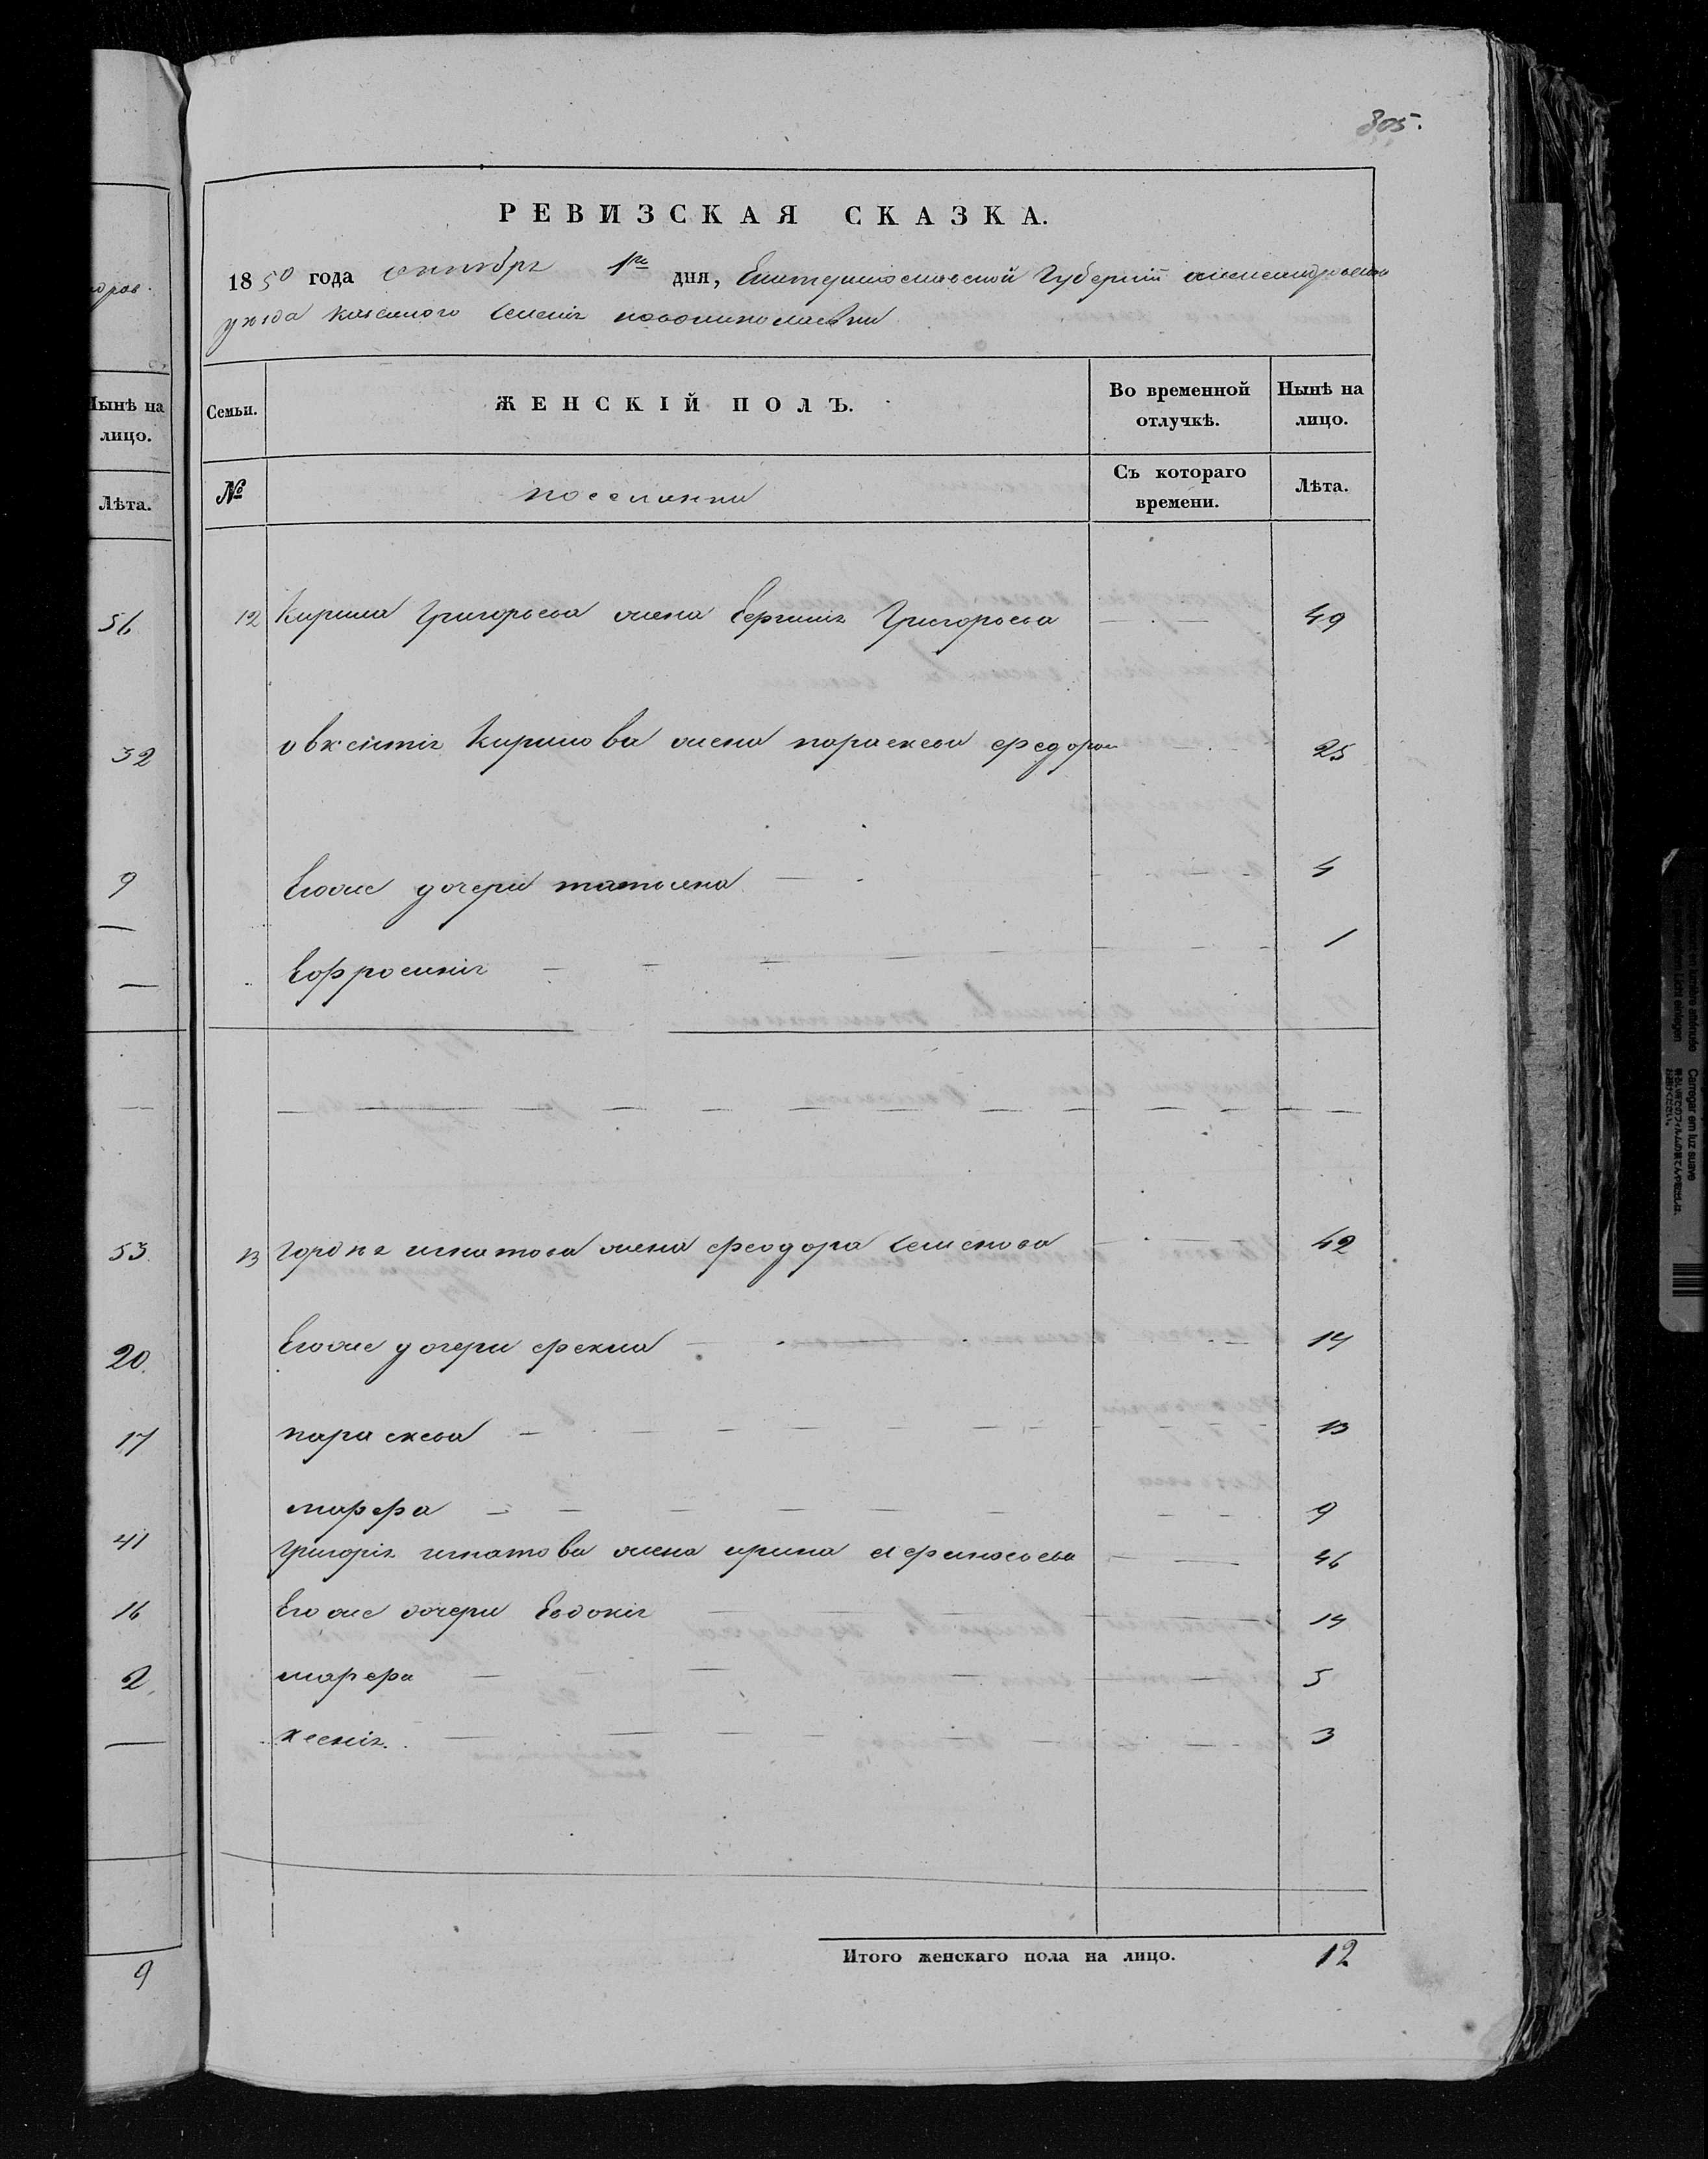 305.
РЕВИЗСКАЯ СКАЗКА.
1850 года октября 1го дня, Екатеринославской Губернии александровского
уезда казенного селения новониколаевки
Семьи.
ЖЕНСКІЙ ПОЛЪ.
Во временной отлучкѣ.
Нынѣ на лицо.
№
поселянки
Съ котораго времени.
Лѣта.
12 Кирила Григорьева жена Григорьева 49
Кирилова жена параскева федорова 25
Егоже дочери татьяна 4
Ефросиния 1
13 гордея игнатова жена феодора семенова 42
Егоже дочери фекла 14
параскева 13
марфа 9
григория игнатова жена ирина афанасьева 46
Егоже дочери Евдокия 14
марфа 5
ксения. 3
Итого женскаго пола на лицо. 12
ндров.
Нынѣ на
лицо.
Лѣта.
56
32
9
53.
20.
17
41
16
2.
9